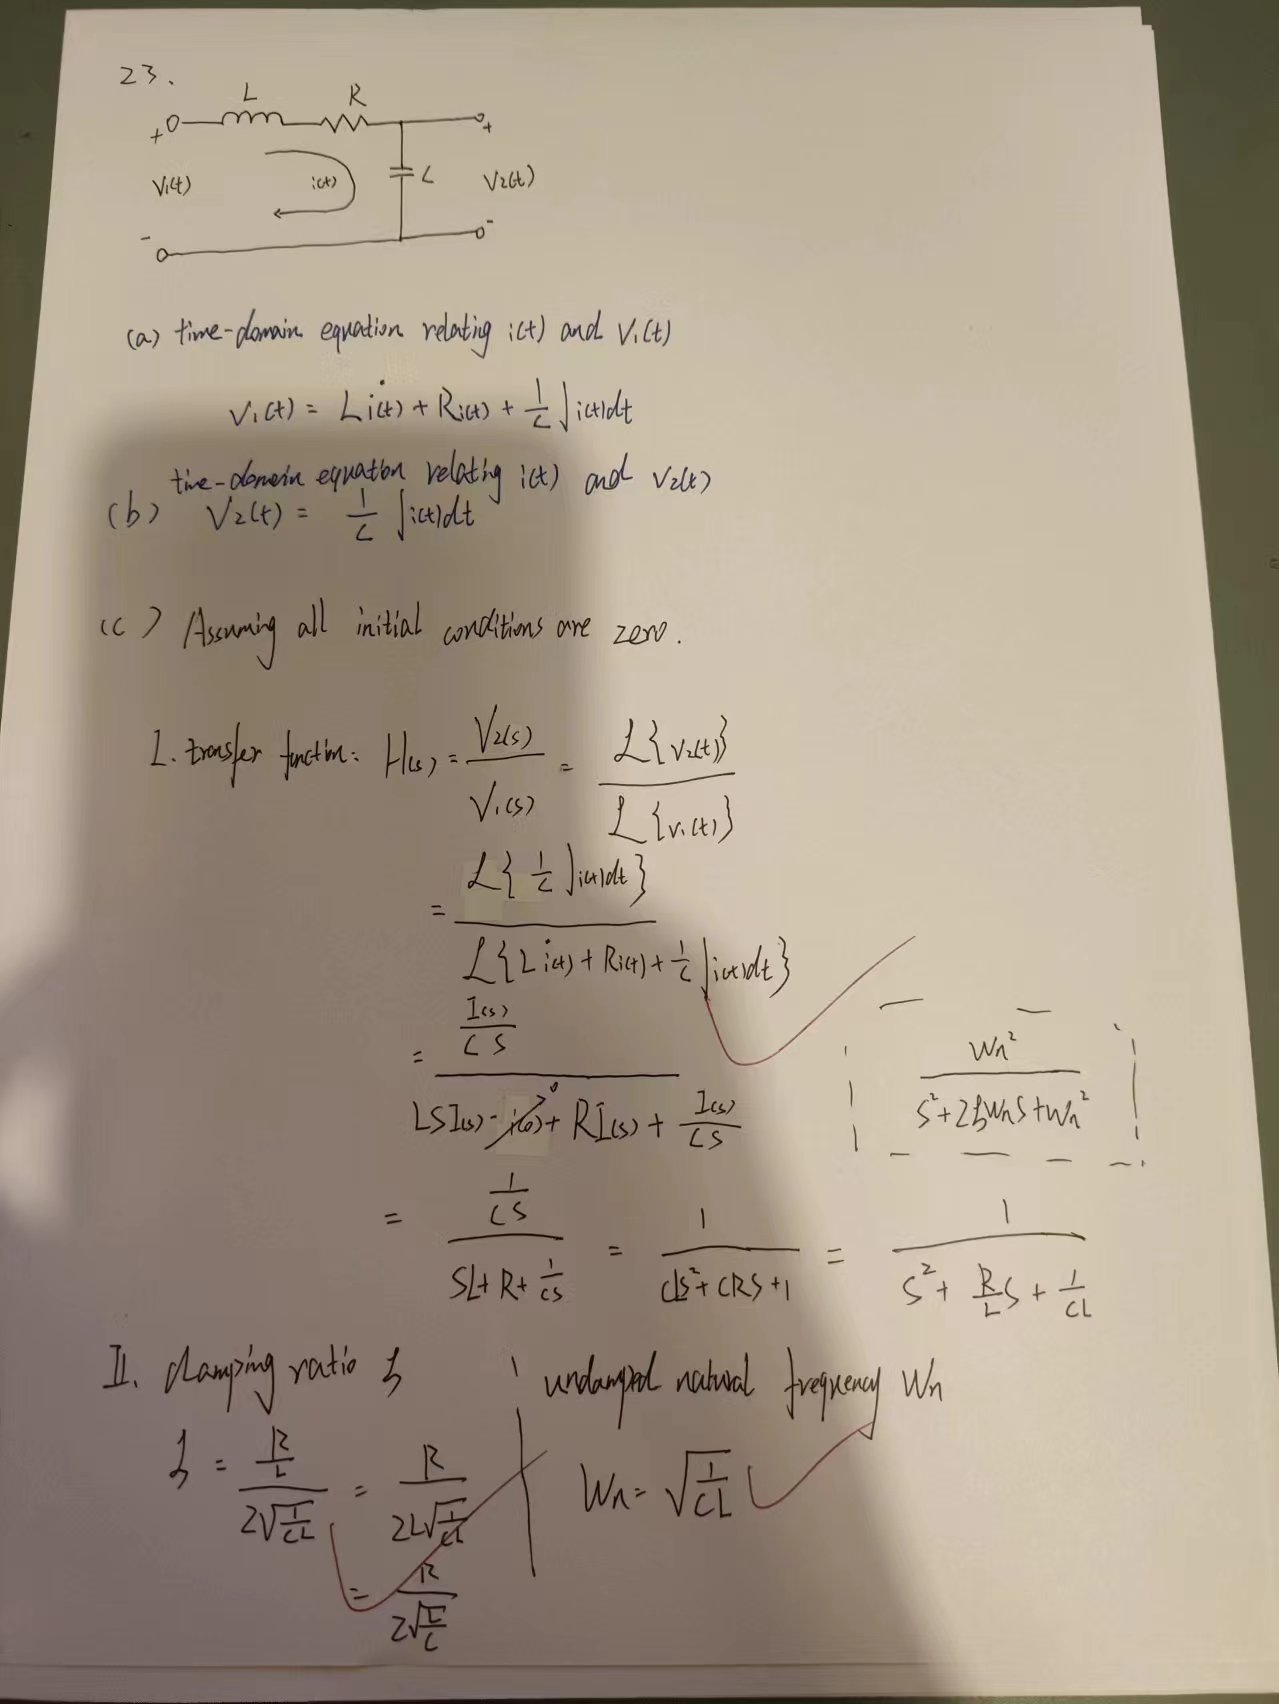 23.
L R
+ +
V₁(t) i(t) C V₂(t)
- -
(a) time-domain equation relating i(t) and V₁(t)
V₁(t) = L i̇(t) + Ri(t) + 1/C ∫i(t)dt
time-domain equation relating i(t) and V₂(t)
(b) V₂(t) = 1/C ∫i(t)dt
(c) Assuming all initial conditions are zero.
I. transfer function: H(s) = V₂(s)/V₁(s) = ℒ{V₂(t)}/ℒ{V₁(t)}
= ℒ{1/C ∫i(t)dt} / ℒ{L i̇(t) + Ri(t) + 1/C ∫i(t)dt}
= (I(s)/CS) / (LSI(s) - i(0)→0 + RI(s) + I(s)/CS)
Wn²/(S²+2ζWnS+Wn²)
= (1/CS)/(SL+R+1/CS) = 1/(CLS²+CRS+1) = 1/(S²+R/L S+1/CL)
II. damping ratio ζ | undamped natural frequency Wn
ζ = (R/L)/(2√(1/CL)) = R/(2L√(1/CL)) | Wn = √(1/CL)
= R/(2√(L/C))